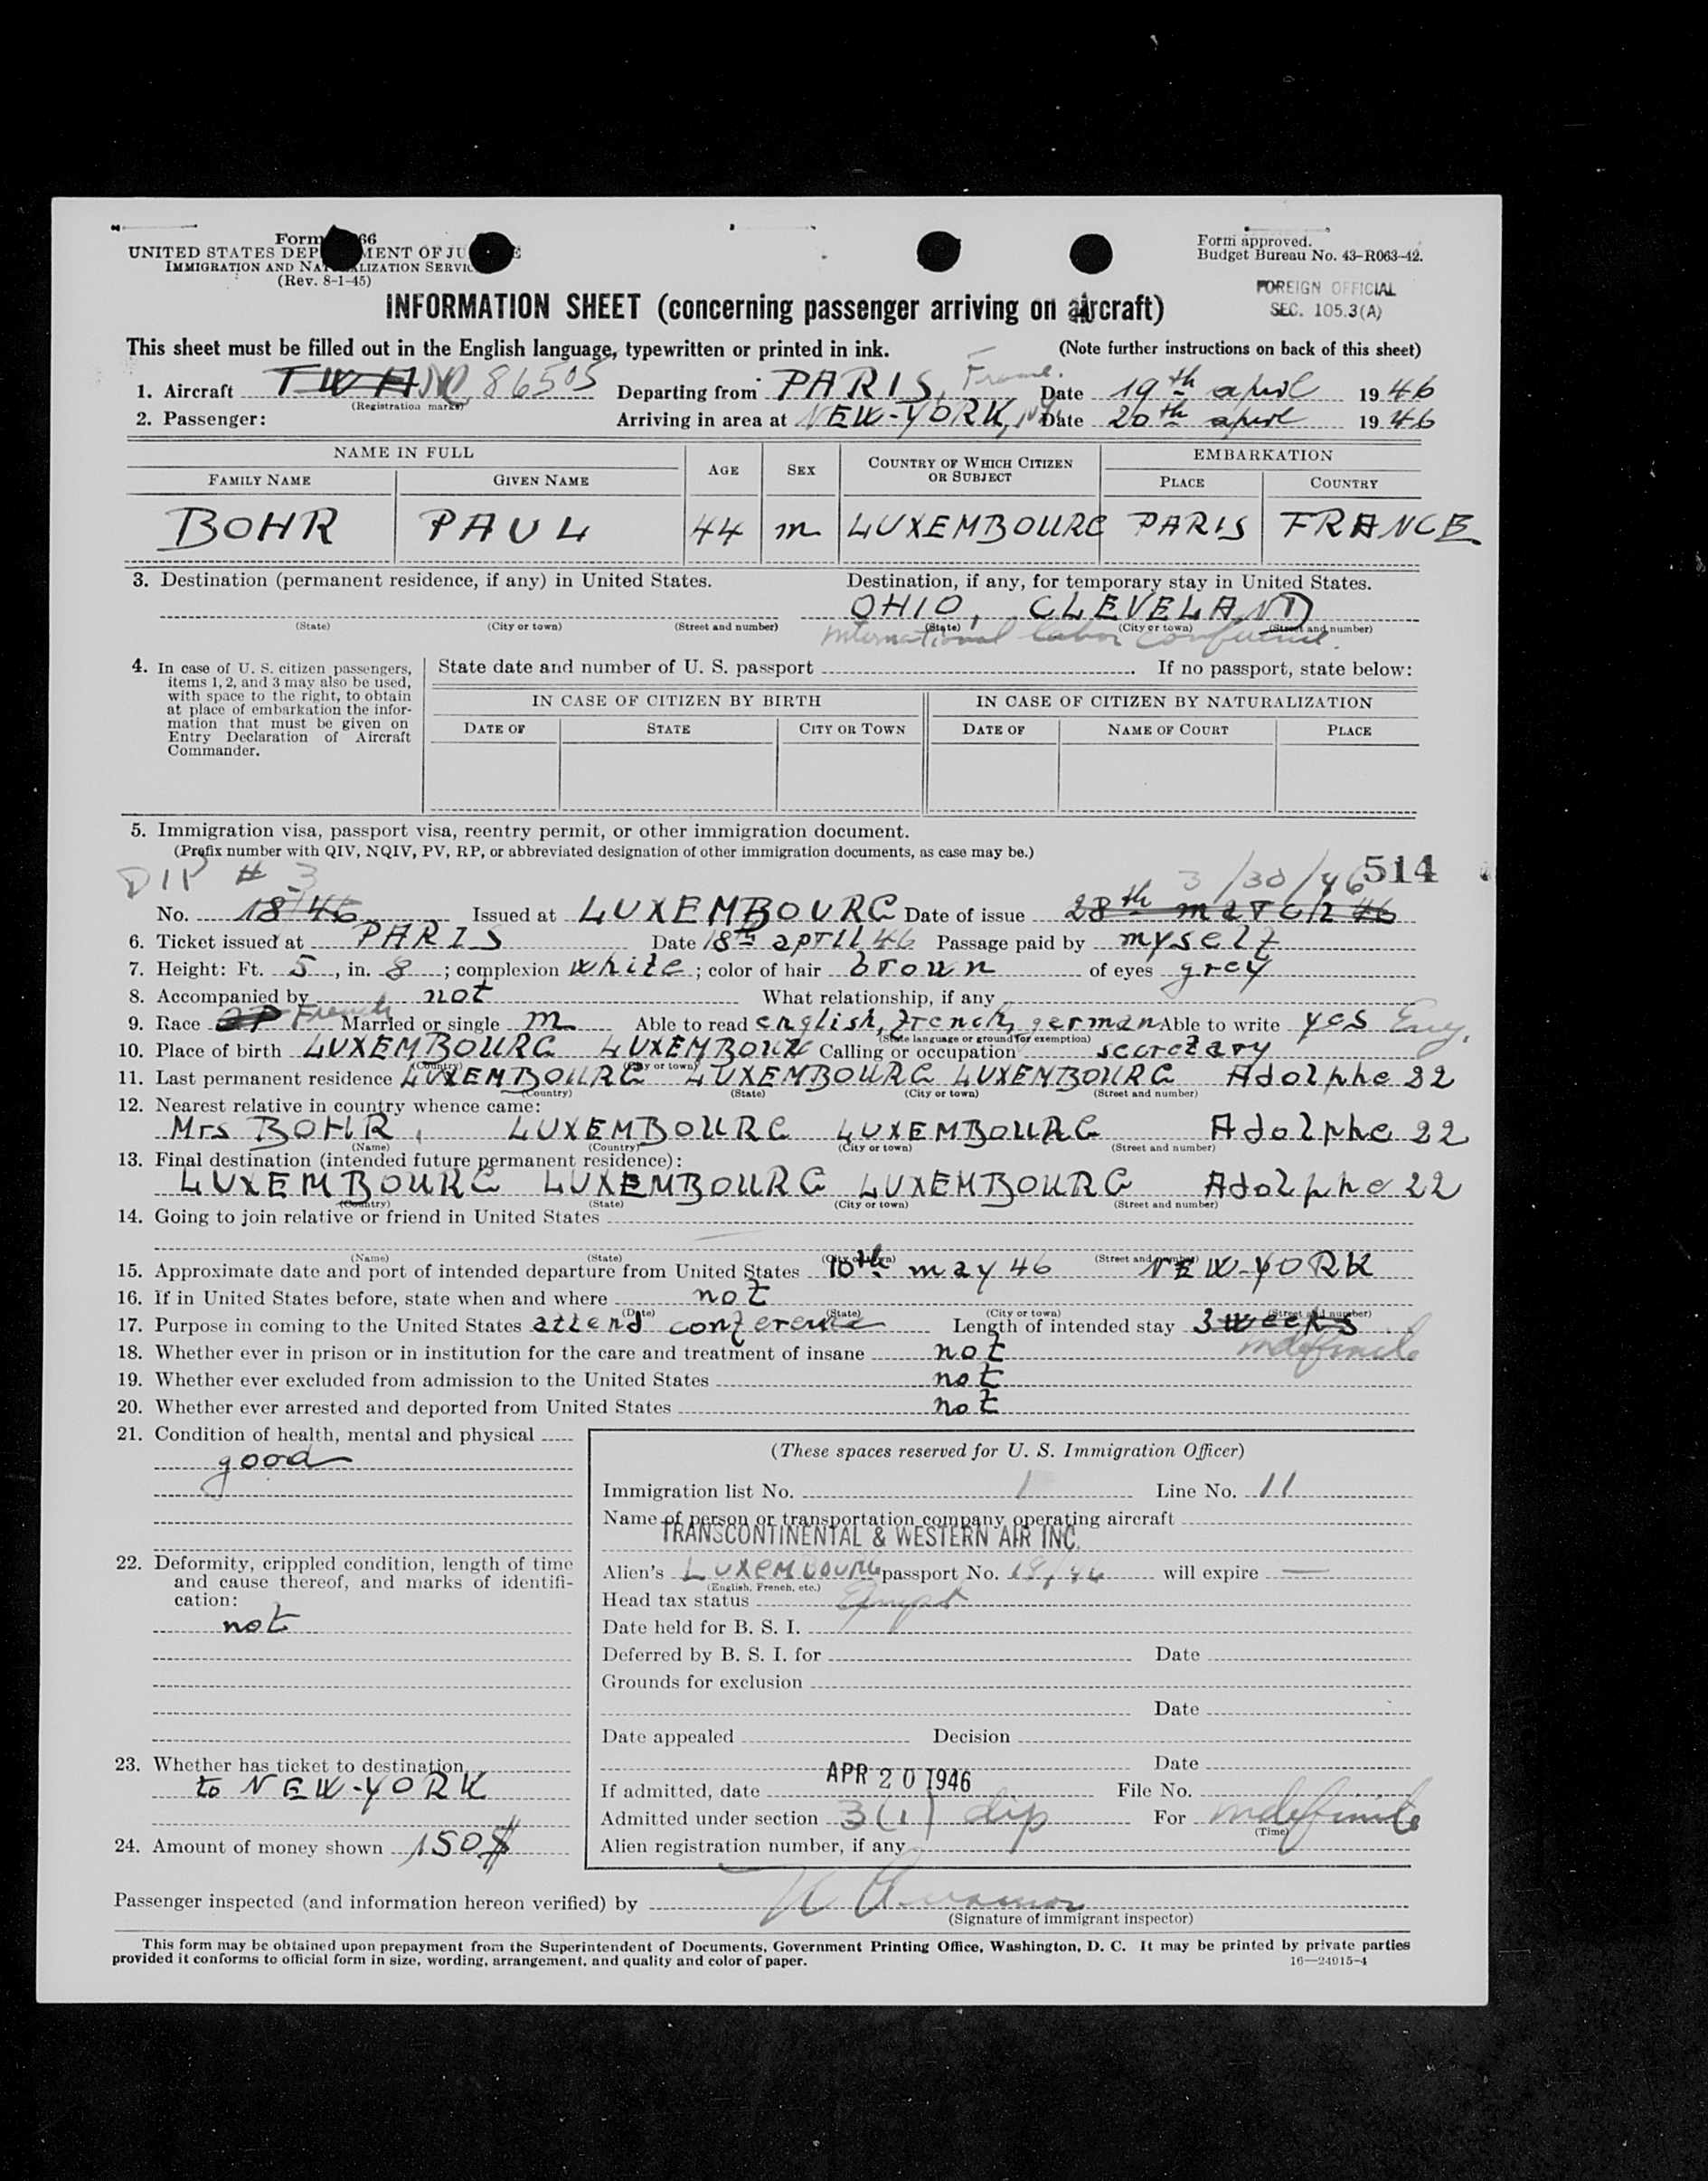 Form 66
UNITED STATES DEP MENT OF JU E
IMMIGRATION AND NA LIZATION SERVIC
(Rev. 8-1-45)
Form approved.
Budget Bureau No. 43-R063-42.
FOREIGN OFFICIAL
SEC. 105.3(A)
INFORMATION SHEET (concerning passenger arriving on aircraft)
This sheet must be filled out in the English language, typewritten or printed in ink. (Note further instructions on back of this sheet)
1. Aircraft TWA 86505 Departing from PARIS, France. Date 19th april 1946
(Registration marks)
2. Passenger: Arriving in area at NEW-YORK, NY. Date 20th april 1946
NAME IN FULL AGE SEX COUNTRY OF WHICH CITIZEN OR SUBJECT EMBARKATION
FAMILY NAME GIVEN NAME PLACE COUNTRY
BOHR PAUL 44 m LUXEMBOURG PARIS FRANCE
3. Destination (permanent residence, if any) in United States. Destination, if any, for temporary stay in United States.
OHIO, CLEVELAND
(State) (City or town) (Street and number) (State) (City or town) (Street and number)
International labor conference.
4. In case of U. S. citizen passengers, items 1, 2, and 3 may also be used, with space to the right, to obtain at place of embarkation the information that must be given on Entry Declaration of Aircraft Commander.
State date and number of U. S. passport If no passport, state below:
IN CASE OF CITIZEN BY BIRTH IN CASE OF CITIZEN BY NATURALIZATION
DATE OF STATE CITY OR TOWN DATE OF NAME OF COURT PLACE
5. Immigration visa, passport visa, reentry permit, or other immigration document.
(Prefix number with QIV, NQIV, PV, RP, or abbreviated designation of other immigration documents, as case may be.)
DIP # 3 3/30/46 514
No. 18/46 Issued at LUXEMBOURG Date of issue 28th march 46
6. Ticket issued at PARIS Date 18th april 46 Passage paid by myself
7. Height: Ft. 5, in. 8; complexion white; color of hair broun of eyes grey
8. Accompanied by not What relationship, if any
9. Race French Married or single m Able to read english, french, german Able to write yes Eng.
(State language or ground for exemption)
10. Place of birth LUXEMBOURG LUXEMBOURG Calling or occupation secretary
(Country) (City or town)
11. Last permanent residence LUXEMBOURG LUXEMBOURG LUXEMBOURG Adolphe 22
(Country) (State) (City or town) (Street and number)
12. Nearest relative in country whence came:
Mrs BOHR, LUXEMBOURG LUXEMBOURG Adolphe 22
(Name) (Country) (City or town) (Street and number)
13. Final destination (intended future permanent residence):
LUXEMBOURG LUXEMBOURG LUXEMBOURG Adolphe 22
(Country) (State) (City or town) (Street and number)
14. Going to join relative or friend in United States
(Name) (State) (City or town) (Street and number)
15. Approximate date and port of intended departure from United States 10th may 46 NEW-YORK
16. If in United States before, state when and where not
(Date) (State) (City or town) (Street and number)
17. Purpose in coming to the United States attend conference Length of intended stay 3 weeks
indefinite
18. Whether ever in prison or in institution for the care and treatment of insane not
19. Whether ever excluded from admission to the United States not
20. Whether ever arrested and deported from United States not
21. Condition of health, mental and physical
good
22. Deformity, crippled condition, length of time and cause thereof, and marks of identification:
not
23. Whether has ticket to destination
to NEW-YORK
24. Amount of money shown 150$
(These spaces reserved for U. S. Immigration Officer)
Immigration list No. 1 Line No. 11
Name of person or transportation company operating aircraft
TRANSCONTINENTAL & WESTERN AIR INC.
Alien's Luxembourg passport No. 18/46 will expire —
(English, French, etc.)
Head tax status Exmpt
Date held for B. S. I.
Deferred by B. S. I. for Date
Grounds for exclusion
Date
Date appealed Decision
Date
If admitted, date APR 20 1946 File No.
Admitted under section 3(1) dip For indefinite
(Time)
Alien registration number, if any
Passenger inspected (and information hereon verified) by
(Signature of immigrant inspector)
This form may be obtained upon prepayment from the Superintendent of Documents, Government Printing Office, Washington, D. C. It may be printed by private parties
provided it conforms to official form in size, wording, arrangement, and quality and color of paper. 16—24915-4